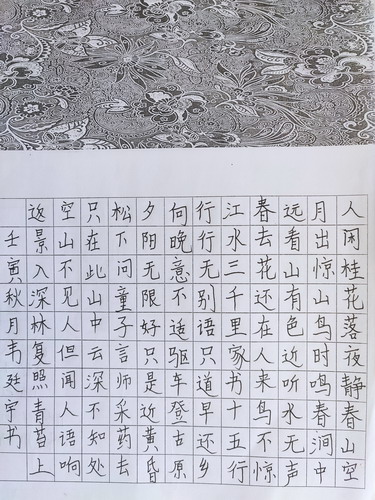 人闲桂花落夜静春山空
月出惊山鸟时鸣春涧中
远看山有色近听水无声
春去花还在人来鸟不惊
江水三千里家书十五行
行行无别语只道早还乡
向晚意不适驱车登古原
夕阳无限好只是近黄昏
松下问童子言师采药去
只在此山中云深不知处
空山不见人但闻人语响
返景入深林复照青苔上
壬寅秋月韦廷宇书